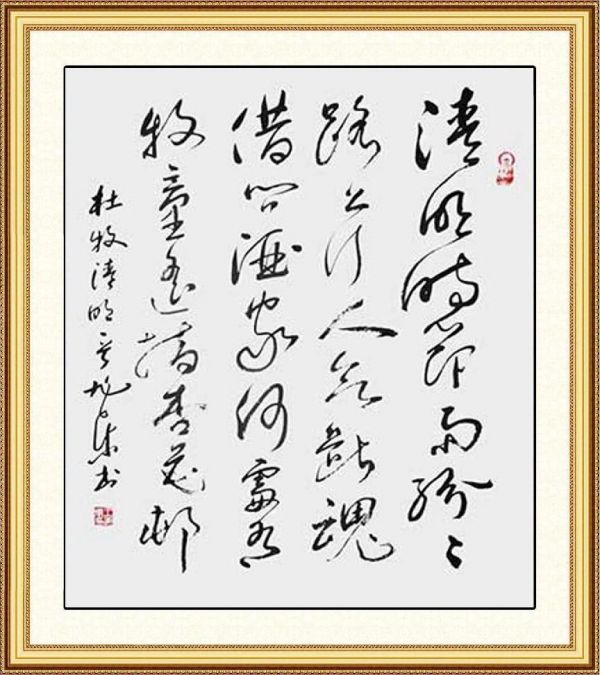 清明時節雨紛々
路上行人欲斷魂
借問酒家何處有
牧童遙指杏花邨
杜牧清明